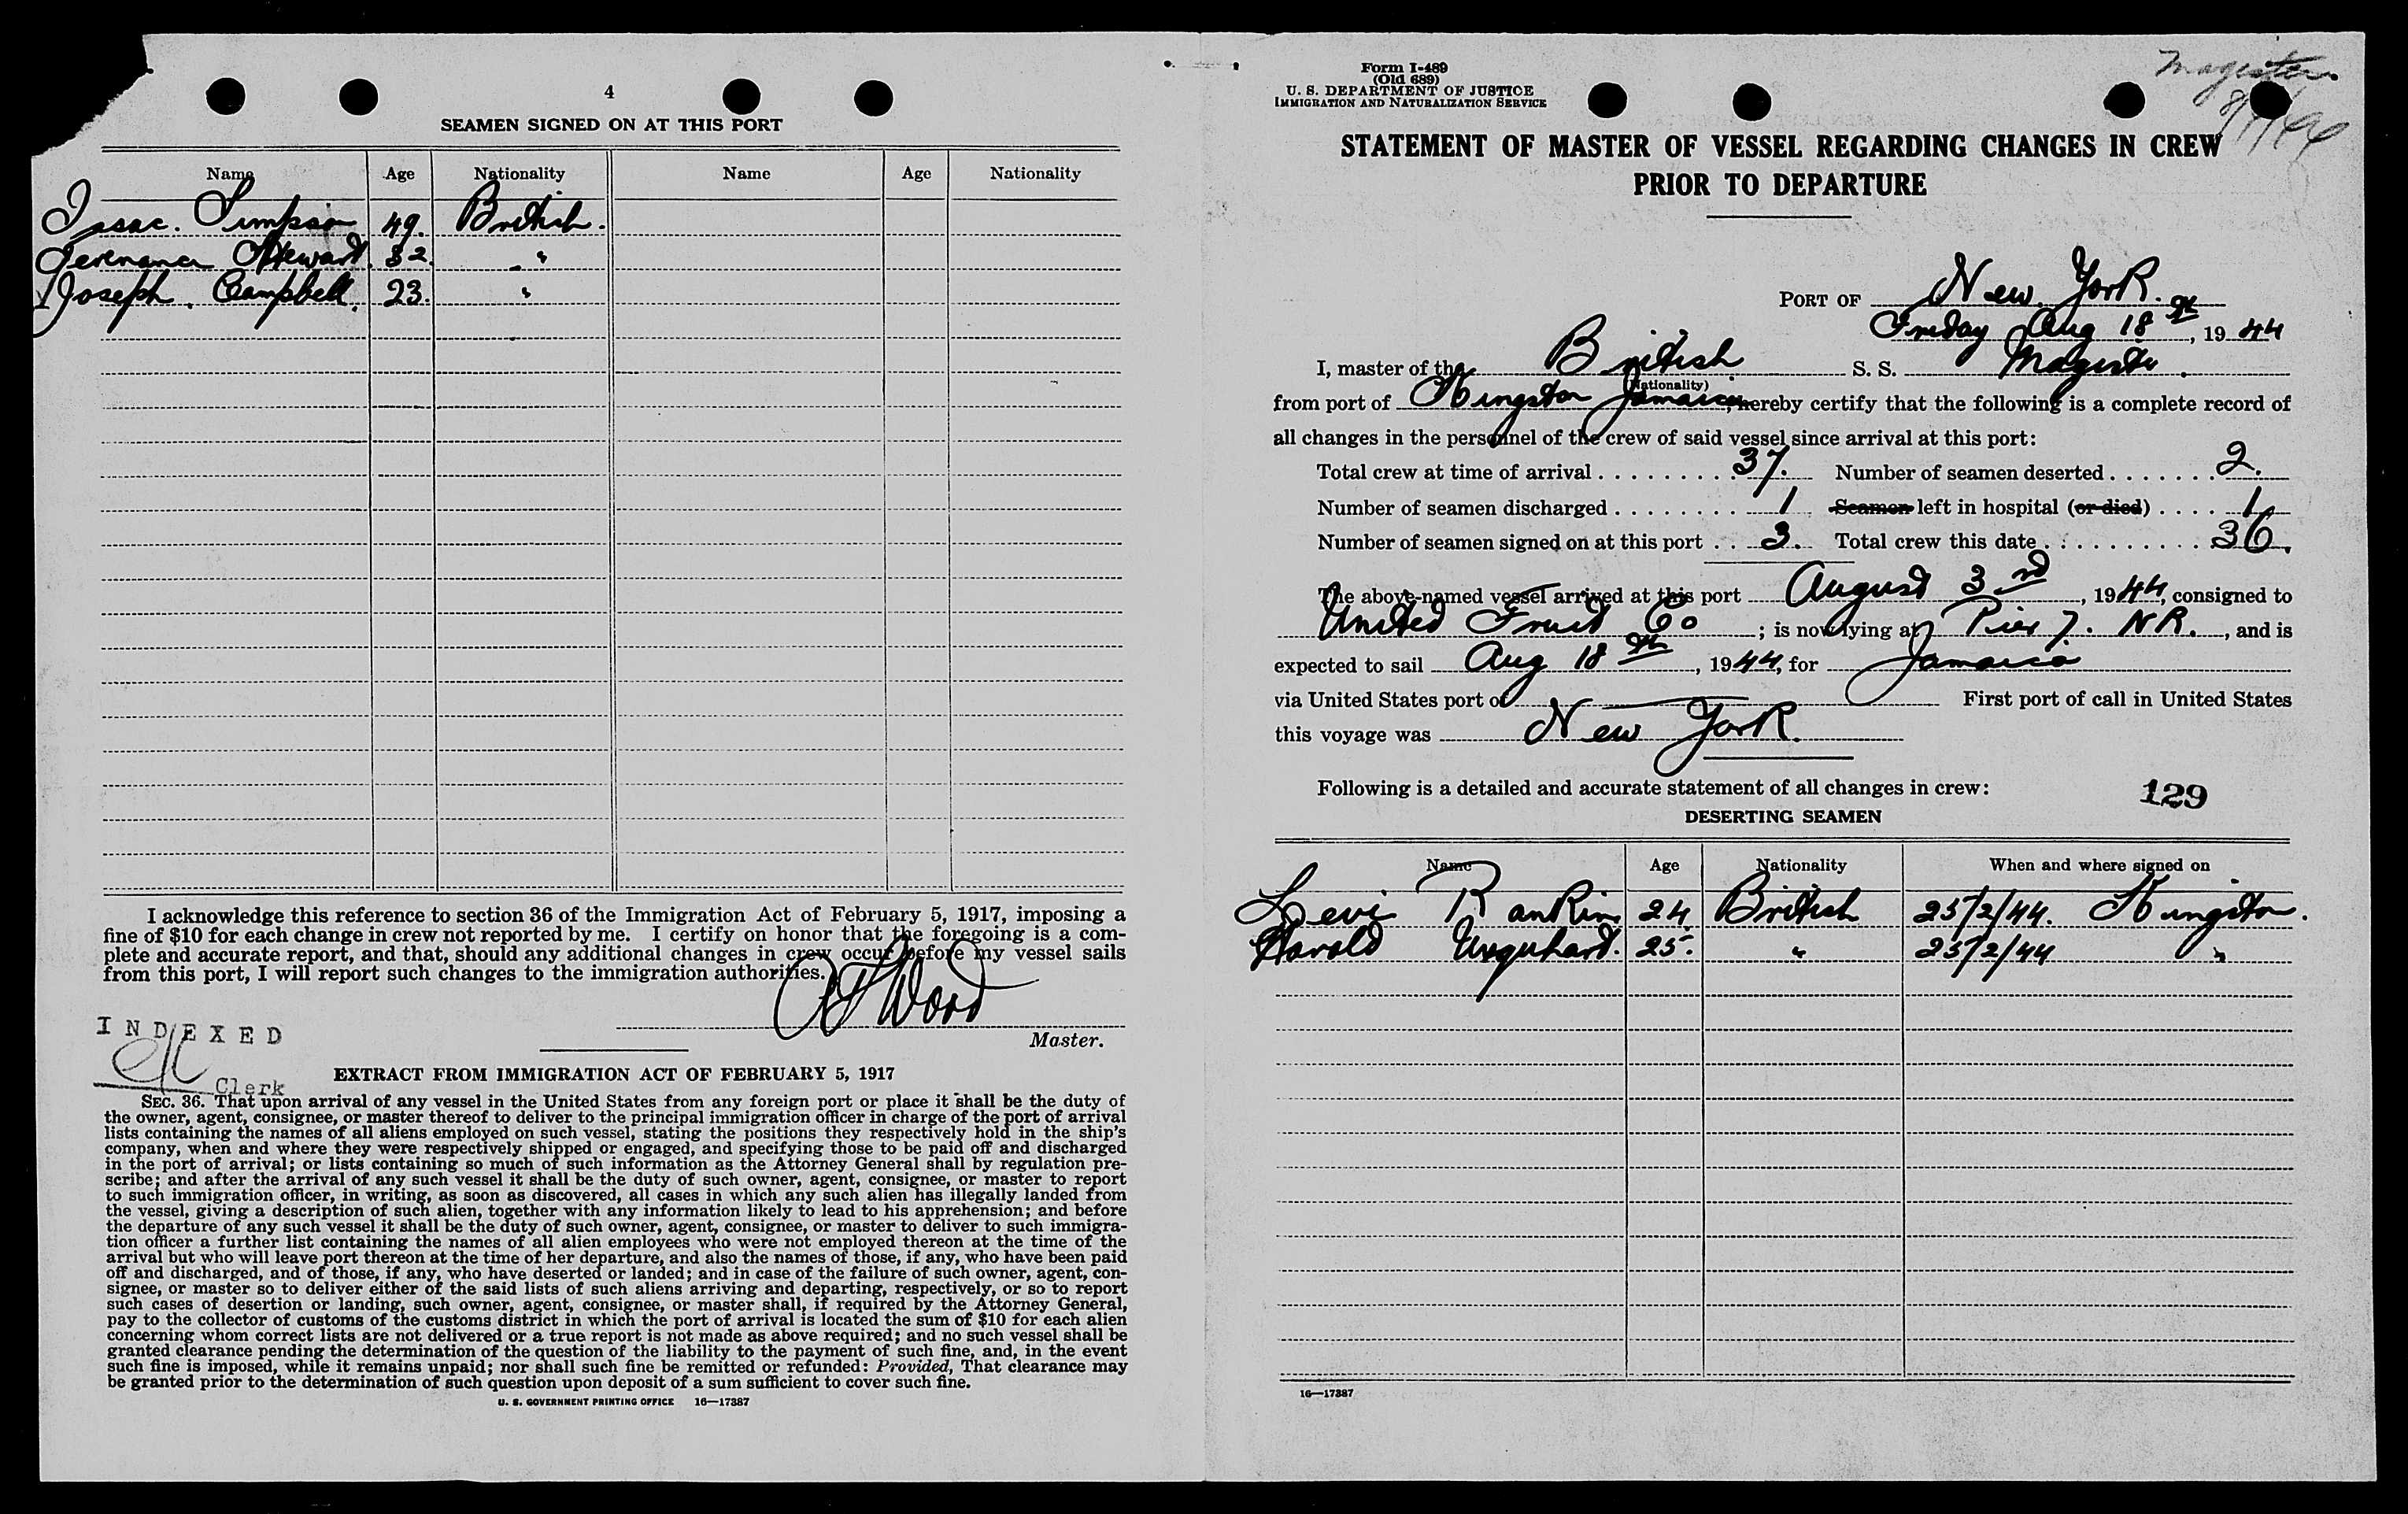 4
SEAMEN SIGNED ON AT THIS PORT
Name Age Nationality Name Age Nationality
Isaac. Simpson 49. British.
Stewart. 32. "
Joseph. Campbell. 23. "
I acknowledge this reference to section 36 of the Immigration Act of February 5, 1917, imposing a
fine of $10 for each change in crew not reported by me. I certify on honor that the foregoing is a com-
plete and accurate report, and that, should any additional changes in crew occur before my vessel sails
from this port, I will report such changes to the immigration authorities.
Wood
Master.
INDEXED
Clerk
EXTRACT FROM IMMIGRATION ACT OF FEBRUARY 5, 1917
SEC. 36. That upon arrival of any vessel in the United States from any foreign port or place it shall be the duty of
the owner, agent, consignee, or master thereof to deliver to the principal immigration officer in charge of the port of arrival
lists containing the names of all aliens employed on such vessel, stating the positions they respectively hold in the ship's
company, when and where they were respectively shipped or engaged, and specifying those to be paid off and discharged
in the port of arrival; or lists containing so much of such information as the Attorney General shall by regulation pre-
scribe; and after the arrival of any such vessel it shall be the duty of such owner, agent, consignee, or master to report
to such immigration officer, in writing, as soon as discovered, all cases in which any such alien has illegally landed from
the vessel, giving a description of such alien, together with any information likely to lead to his apprehension; and before
the departure of any such vessel it shall be the duty of such owner, agent, consignee, or master to deliver to such immigra-
tion officer a further list containing the names of all alien employees who were not employed thereon at the time of the
arrival but who will leave port thereon at the time of her departure, and also the names of those, if any, who have been paid
off and discharged, and of those, if any, who have deserted or landed; and in case of the failure of such owner, agent, con-
signee, or master so to deliver either of the said lists of such aliens arriving and departing, respectively, or so to report
such cases of desertion or landing, such owner, agent, consignee, or master shall, if required by the Attorney General,
pay to the collector of customs of the customs district in which the port of arrival is located the sum of $10 for each alien
concerning whom correct lists are not delivered or a true report is not made as above required; and no such vessel shall be
granted clearance pending the determination of the question of the liability to the payment of such fine, and, in the event
such fine is imposed, while it remains unpaid; nor shall such fine be remitted or refunded: Provided, That clearance may
be granted prior to the determination of such question upon deposit of a sum sufficient to cover such fine.
U. S. GOVERNMENT PRINTING OFFICE 16—17387
Form I-489
(Old 689)
U. S. DEPARTMENT OF JUSTICE
IMMIGRATION AND NATURALIZATION SERVICE
Magister
STATEMENT OF MASTER OF VESSEL REGARDING CHANGES IN CREW
PRIOR TO DEPARTURE
PORT OF New York.
Friday Aug 18th, 1944
I, master of the British S. S. Magister.
(Nationality)
from port of Kingston Jamaica, hereby certify that the following is a complete record of
all changes in the personnel of the crew of said vessel since arrival at this port:
Total crew at time of arrival 37. Number of seamen deserted 2.
Number of seamen discharged 1 Seamen left in hospital (or died) 1
Number of seamen signed on at this port 3. Total crew this date 36.
The above-named vessel arrived at this port August 3rd, 1944, consigned to
United Fruit Co; is now lying at Pier 7. N.R., and is
expected to sail Aug 18th, 1944, for Jamaica
via United States port of — First port of call in United States
this voyage was New York.
Following is a detailed and accurate statement of all changes in crew: 129
DESERTING SEAMEN
Name Age Nationality When and where signed on
Levi Rankin 24 British 25/2/44. Kingston.
Harold Urquhart. 25. " 25/2/44 "
16—17387